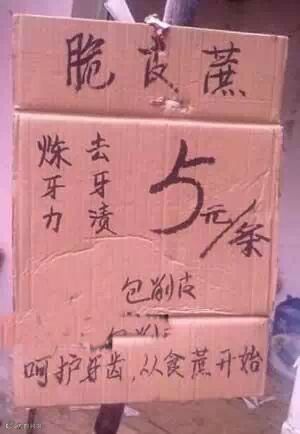 脆皮蔗
去牙渍
炼牙力
5元/条
包削皮
包削
呵护牙齿,从食蔗开始